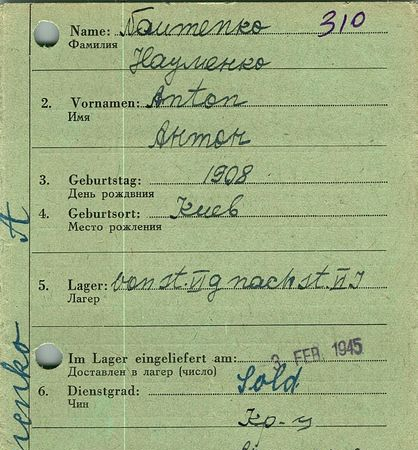 Name: Naumenko 310
Фамилия
Науменко
2. Vornamen: Anton
Имя
Антон
3. Geburtstag: 1908
День рождвния
4. Geburtsort: Киев
Место рождения
5. Lager: von st. VI G nach st. VI J
Лагер
Im Lager eingeliefert am: 3. FEB. 1945
Доставлен в лагер (число)
6. Dienstgrad: Sold
Чин
Ко-ц
enko A